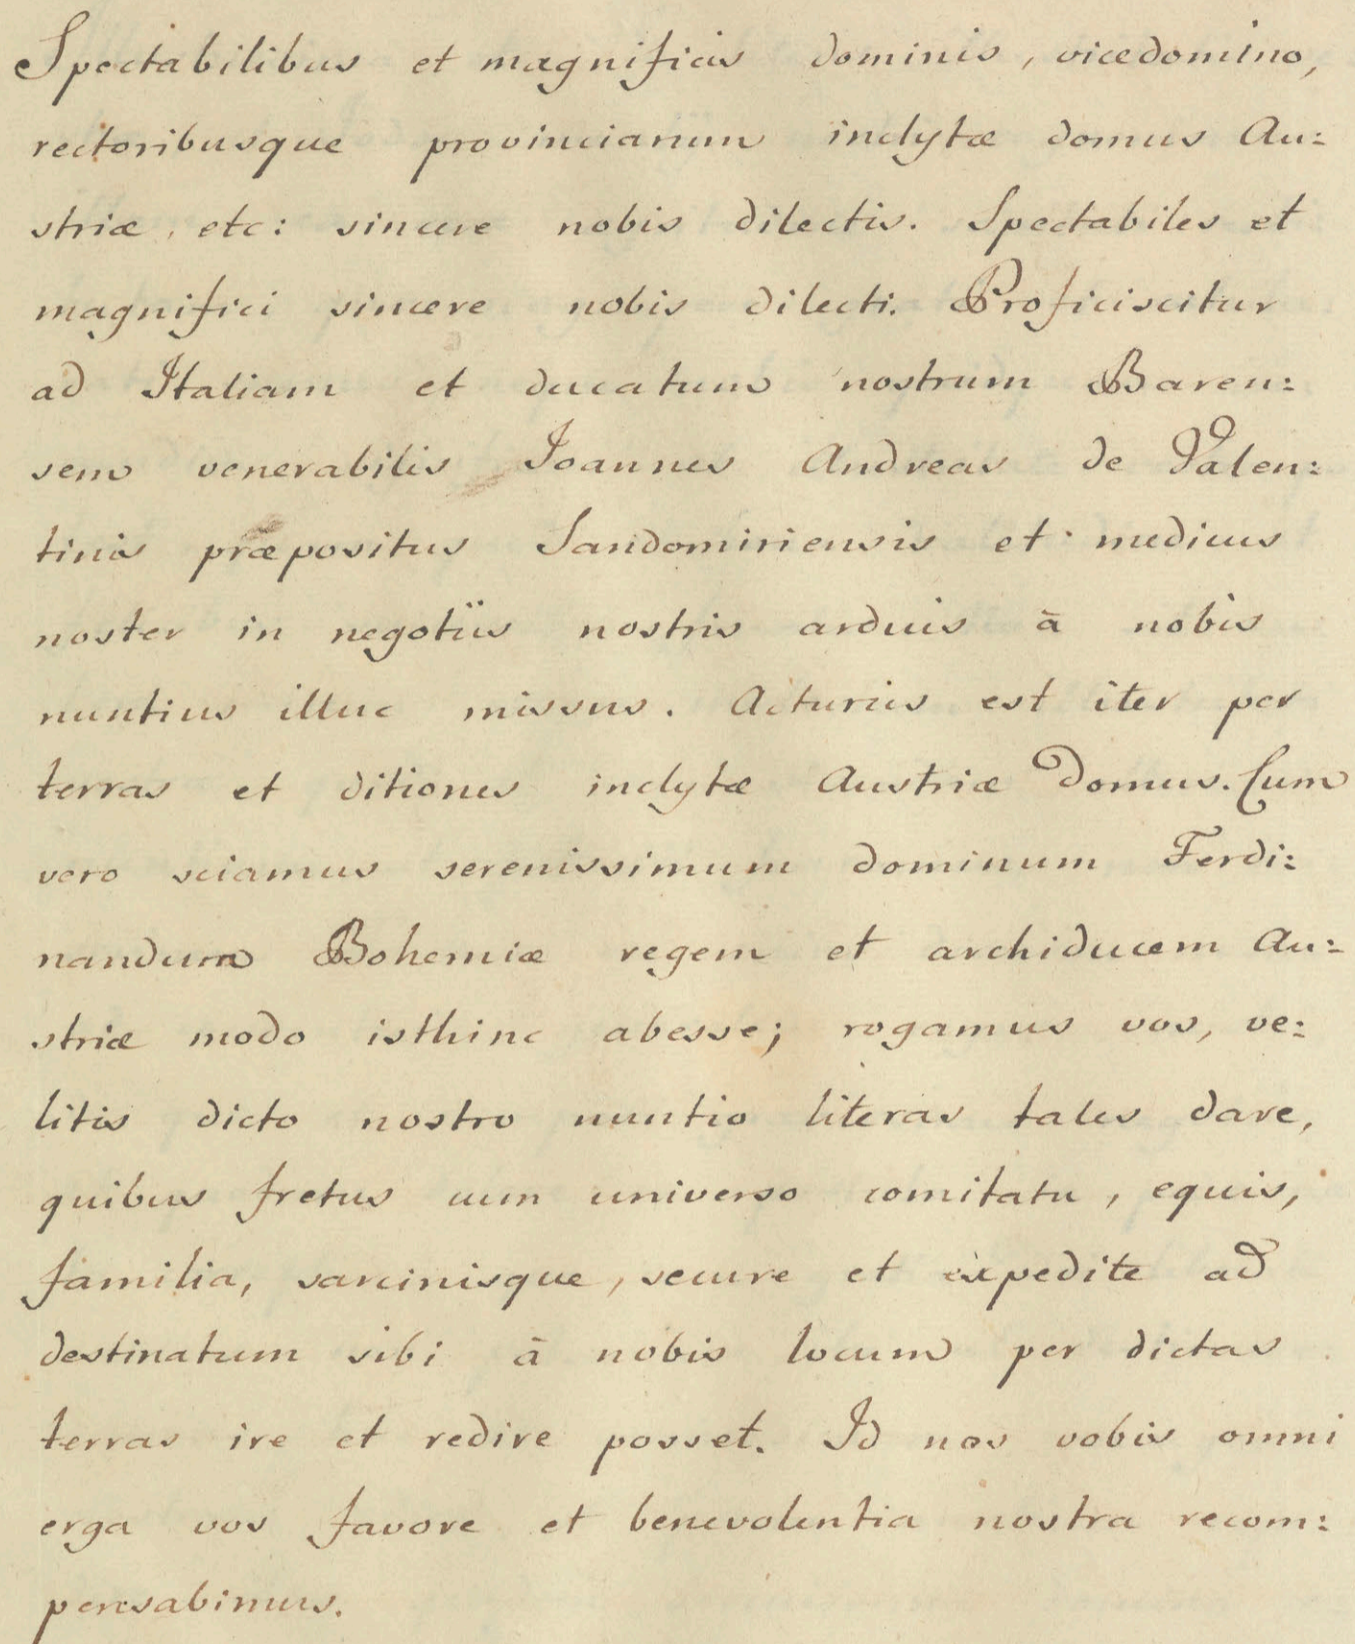 Spectabilibus et magnificis dominis, vicedomino,
rectoribusque provinciarum inclytæ domus Au:
striæ, etc: sincere nobis dilectis. Spectabiles et
magnifici sincere nobis dilecti. Proficiscitur
ad Italiam et ducatum nostrum Baren:
sem venerabilis Joannes Andreas de Valen:
tinis præpositus Sandomiriensis et medicus
noster in negotiis nostris arduis à nobis
nuntius illuc missus. Acturus est iter per
terras et ditiones inclytæ Austriæ Domus. Cum
vero sciamus serenissimum dominum Ferdi:
nandum Bohemiæ regem et archiducem Au:
striæ modo isthinc abesse; rogamus vos, ve:
litis dicto nostro nuntio literas tales dare,
quibus fretus cum universo comitatu, equis,
familia, sarcinisque, secure et expedite ad
destinatum sibi à nobis locum per dictas
terras ire et redire posset. Id nos vobis omni
erga vos favore et benevolentia nostra recom:
pensabimus.